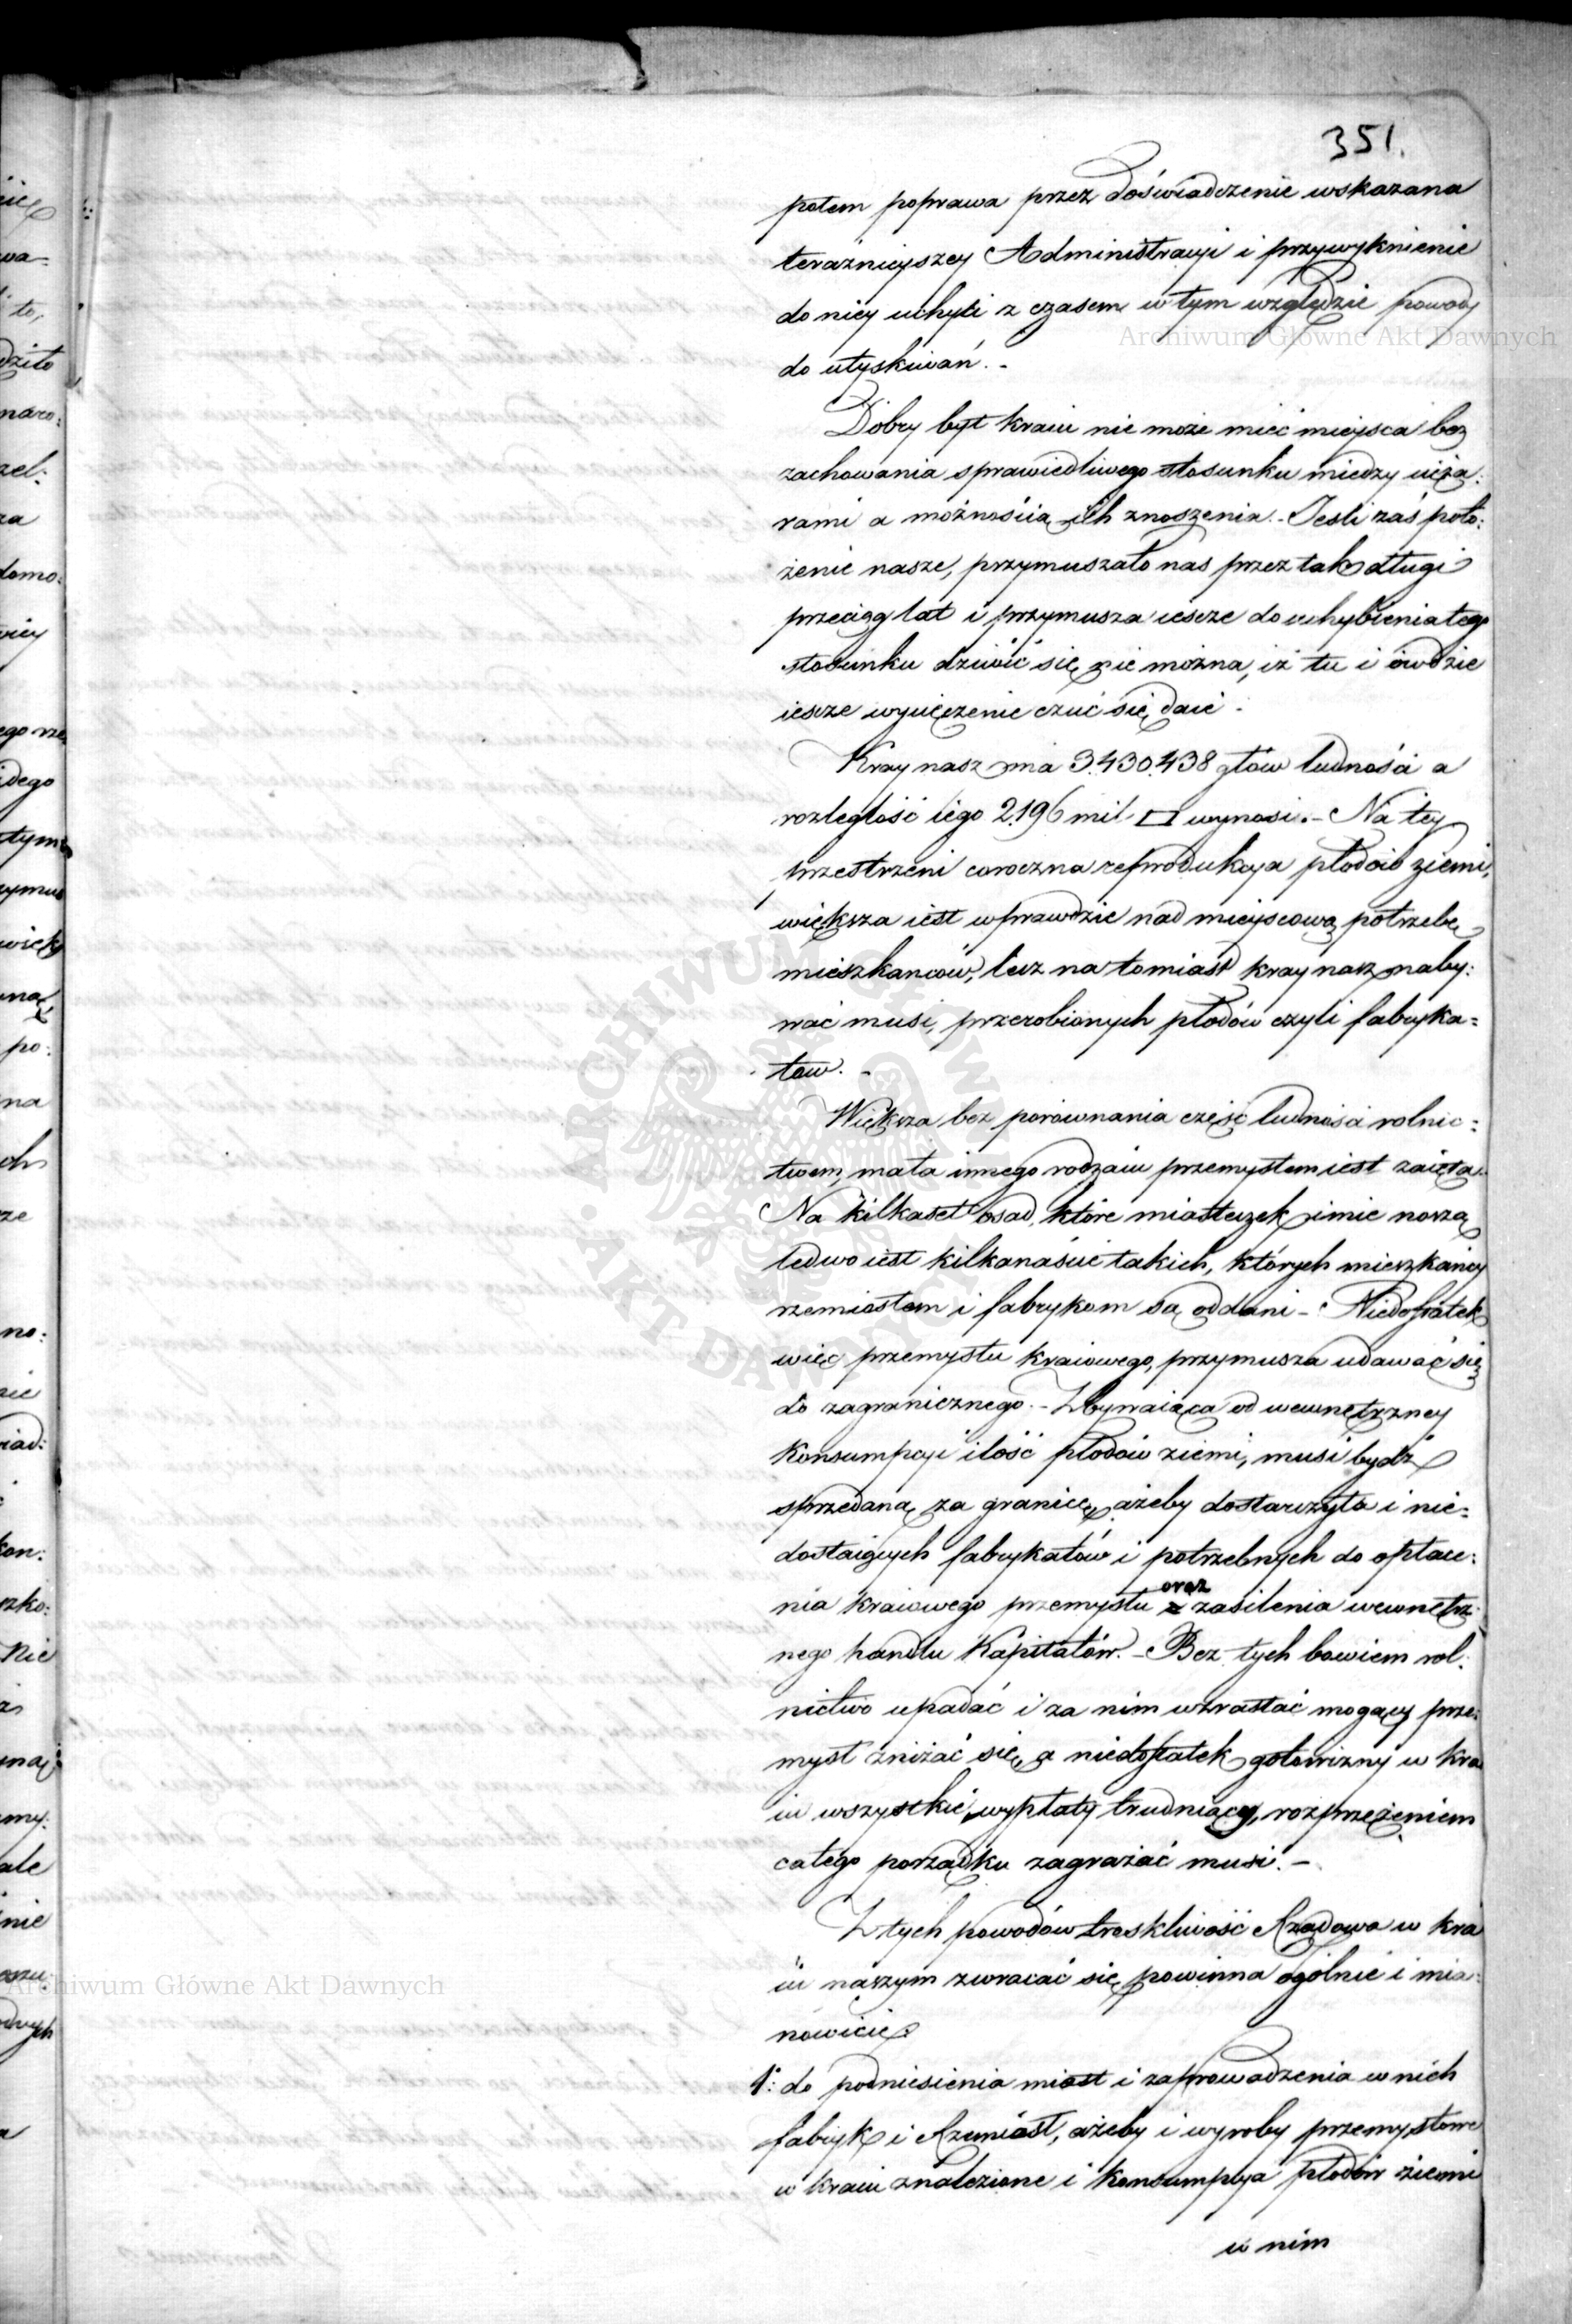 351.
potem poprawa przez doświadczenie wskazana
teraźnieyszey Administracyi i przywyknienie
do niey uchyli z czasem w tym względzie powody
do utyskiwań. -
Dobry byt kraiu nie może mieć mieysca bez
zachowania sprawiedliwego stosunku miedzy cięża:
rami a możnością ich znoszenia. - Jesli zaś poło:
żenie nasze, przymuszało nas przez tak długi
przeciąg lat i przymusza iescze do uchybienia tego
stosunku dziwić się nie można, iż tu i owdzie
iescze wycięczenie czuć się daie -
Kray nasz ma 3.430.438 głów ludności a
rozległość iego 2.196 mil □ wynosi. - Na tey
przestrzeni coroczna reprodukcya płodów ziemi,
większa iest wprawdzie nad mieyscową potrzebę
mieszkancow, lecz na tomiast kray nasz naby:
wać musi, przerobionych płodów czyli fabryka=
tow. -
Większa bez porównania część ludności rolnic=
twem, mała innego rodzaiu przemysłem iest zaięta
Na kilkaset osad, które miasteczek imie noszą
ledwo iest kilkanaście takich, których mieszkańcy
rzemiosłom i fabrykom są oddani - Niedostatek
więc przemysłu kraiowego, przymusza udawać się
do zagranicznego. - Zbywaiąca od wewnętrzney
Konsumpcyi ilość płodów ziemi, musi bydź
sprzedaną za granicę, ażeby dostarczyła i nie=
dostaiących fabrykatów i potrzebnych do opłace:
nia kraiowego przemysłu oraz zasilenia wewnętrz:
nego handlu Kapitałów. - Bez tych bowiem rol:
nictwo upadać i za nim wzrastać mogący prze:
mysł zniżać się, a niedostatek gotowizny w kra
iu wszystkie wypłaty trudniący, rozprzężeniem
całego porządku zagrażać musi. -
Z tych powodów troskliwość Rządowa w kra
iu naszym zwracać się powinna ogólnie i mia:
nowicie
1: do podniesienia miast i zaprowadzenia w nich
fabryk i Rzemiosł, ażeby i wyroby przemysłowe
w kraiu znalezione i Konsumpcya płodów ziemi
w nim
Archiwum Główne Akt Dawnych
ARCHIWUM GŁÓWNE AKT DAWNYCH
Archiwum Główne Akt Dawnych